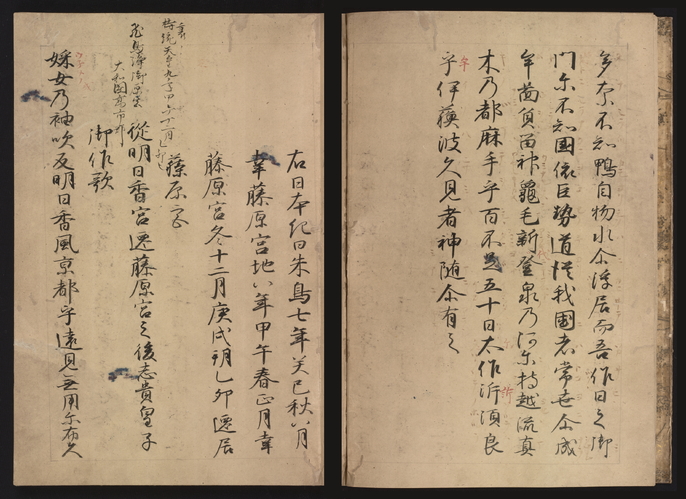 多奈不知鴨自物水尓浮居而吾作日之御
門尓不知國依巨勢道従我國者常世尓成
牟啚負留神龜毛新登泉乃河尓持越流真
木乃都麻手乎百不足五十日太作泝須良
牟
乎伊蘓波久見者神随尓有之
泝
右日本紀曰朱鳥七年癸巳秋八月
幸藤原宮地八年甲午春正月幸
藤原宮冬十二月庚戌朔乙卯遷居
藤原宮
持統天皇九年甲午十二月乙卯
飛鳥浄御原宮
大和国高市郡
従明日香宮遷藤原宮之後志貴皇子
御作歌
婇女乃袖吹反明日香風京都乎遠見無用尓布久